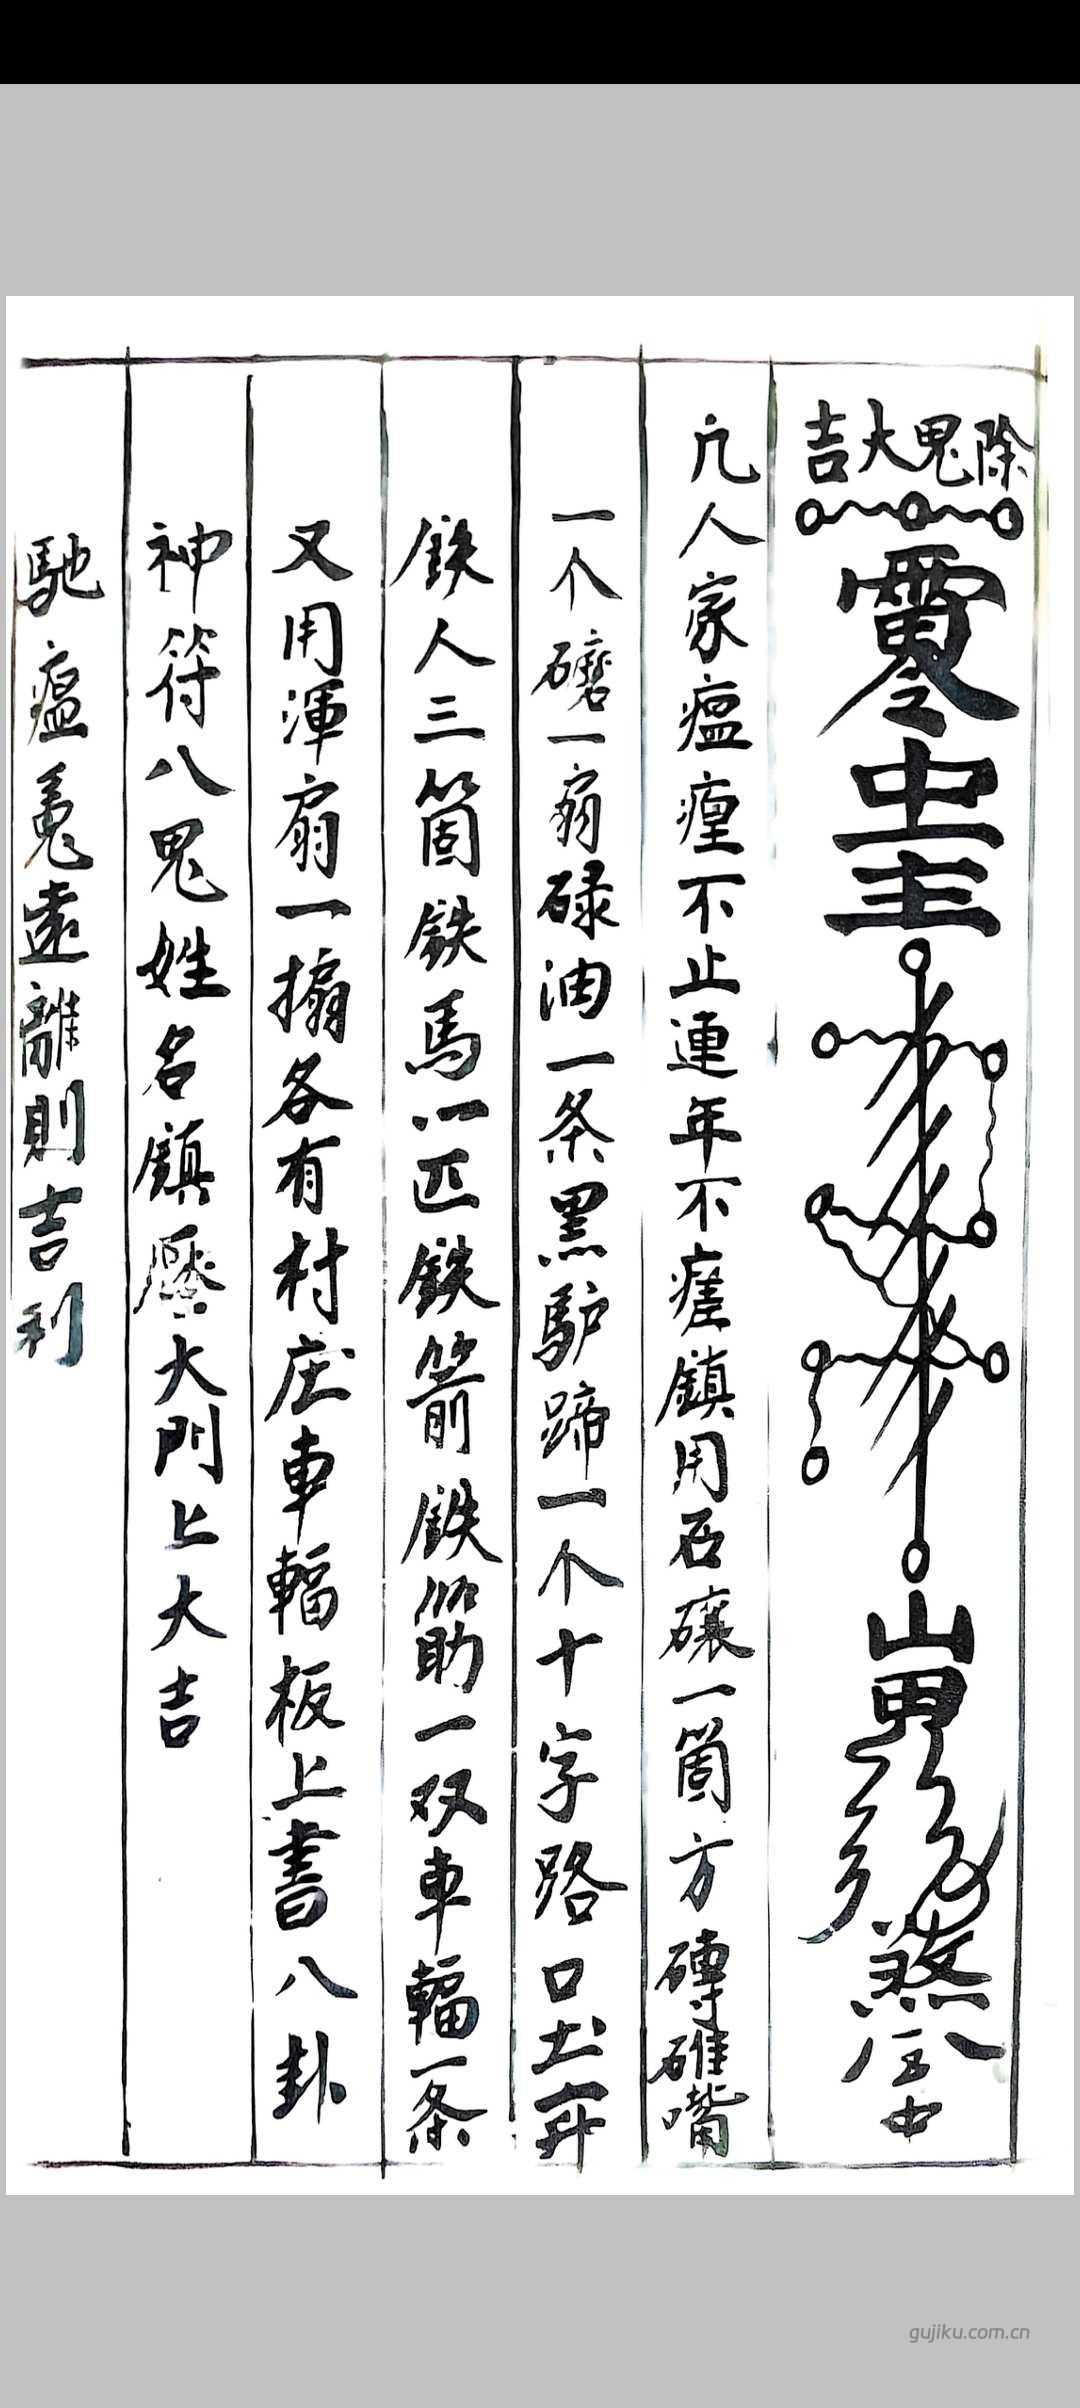 除鬼大吉
山
煞
中
凢人家瘟㾮不止連年不痊鎮用石磙一箇方磚碓嘴
一个磨一扇碌油一条黑驴蹄一个十字路口土一升
鉄人三箇鉄馬一匹鉄箭鉄筋一双車輻一条
又用渾扇一搧各有村庄車輻板上書八卦
神符八鬼姓名鎮壓大門上大吉
馳瘟鬼遠離則吉利
gujiku.com.cn